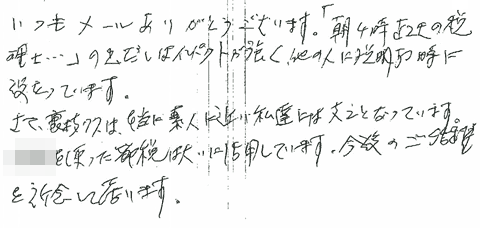 いつもメールありがとうございます。「朝4時起きの税
理士…」の見だしはインパクトが強く、他の人に説明する時に
役立っています。
さて、裏技クスは、特に素人に近い私達には支えとなっています。
を使った節税は大いに活用しています。今後のご活躍
を祈念して居ります。